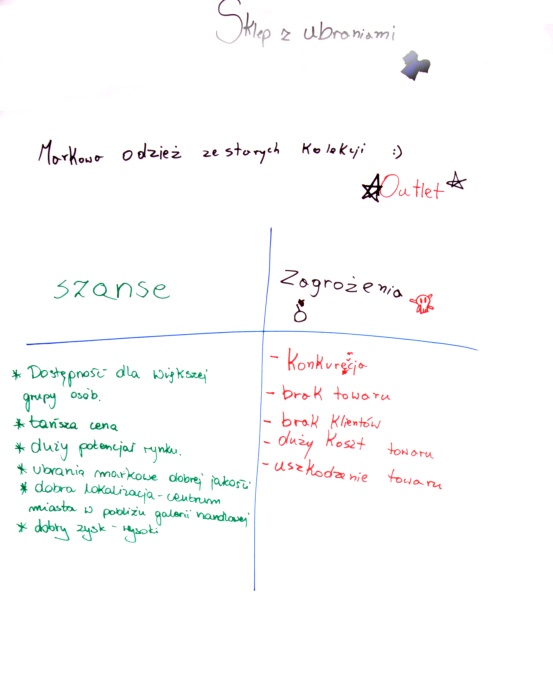 Sklep z ubraniami
Markowa odzież ze starych kolekcji :)
Outlet
szanse
Zagrożenia
* Dostępność dla większej
grupy osób.
* tańsza cena
* duży potencjał rynku.
* ubrania markowe dobrej jakość
* dobra lokalizacja - centrum
miasta w pobliżu galerii handlowej
* dobry zysk - wysoki
- Konkurencja
- brak towaru
- brak Klientów
- duży Koszt towaru
- uszkodzenie towaru